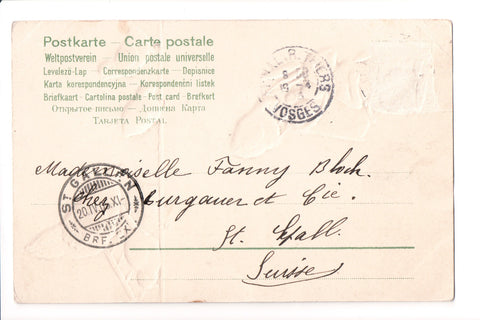 Postkarte — Carte postale
Weltpostverein — Union postale universelle
Levelező-Lap — Correspondenzkarte — Dopisnice
Karta korespondencyjna — Korespondenční listek
Briefkaart - Cartolina postale - Post card - Brefkort
Открытое письмо — Дописна Карта
Tarjeta Postal
VOSGES
Mademoiselle Fanny Bloch.
ST. GALLEN
20.IV. XI-
BRF. EXP.
chez Burgauer et Cie.
St. Gall.
Suisse